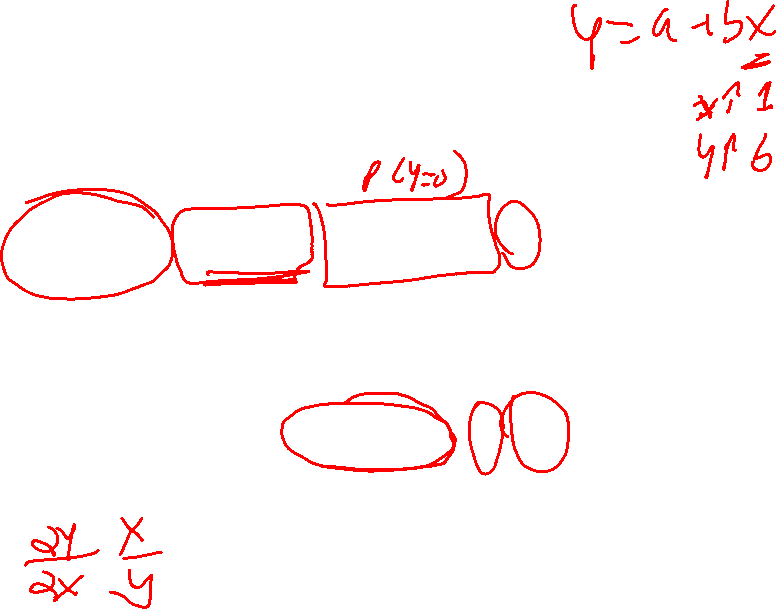 y = a + bx
x↑ 1
y↑ b
P(y=0)
∂y/∂x x/y